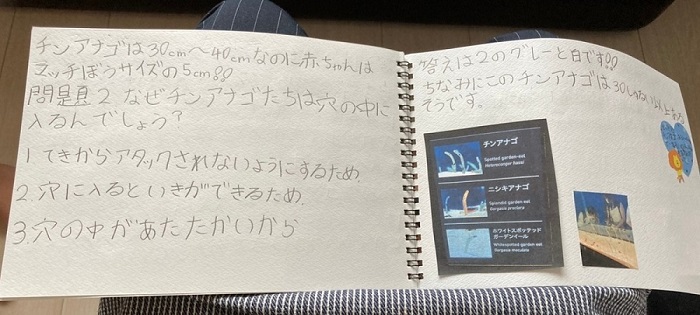 チンアナゴは30cm〜40cmなのに赤ちゃんは
マッチぼうサイズの5cm!!
問題2.なぜチンアナゴたちは穴の中に
入るんでしょう?
1.てきからアタックされないようにするため.
2.穴に入るといきができるため.
3.穴の中があたたかいから
答えは2のグレーと白です!!
ちなみにこのチンアナゴは30しゅるい以上ある
そうです。
チンアナゴ
Spotted garden-eel
Heteroconger hassi
ニシキアナゴ
Splendid garden-eel
Gorgasia preclara
ホワイトスポッテッド
ガーデンイール
Whitespotted garden-eel
Gorgasia maculata